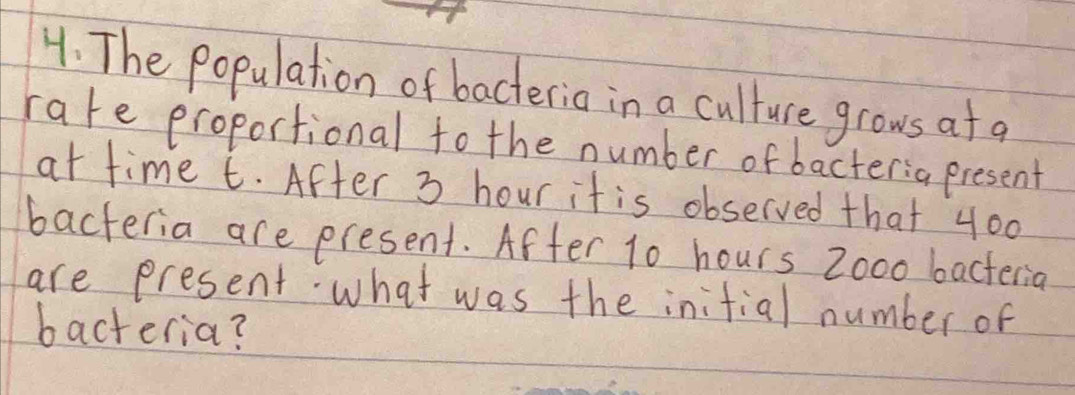 4. The population of bacteria in a culture grows at a
rate proportional to the number of bacteria present
at time t. After 3 hour it is observed that 400
bacteria are present. After 10 hours 2000 bacteria
are present. what was the initial number of
bacteria?